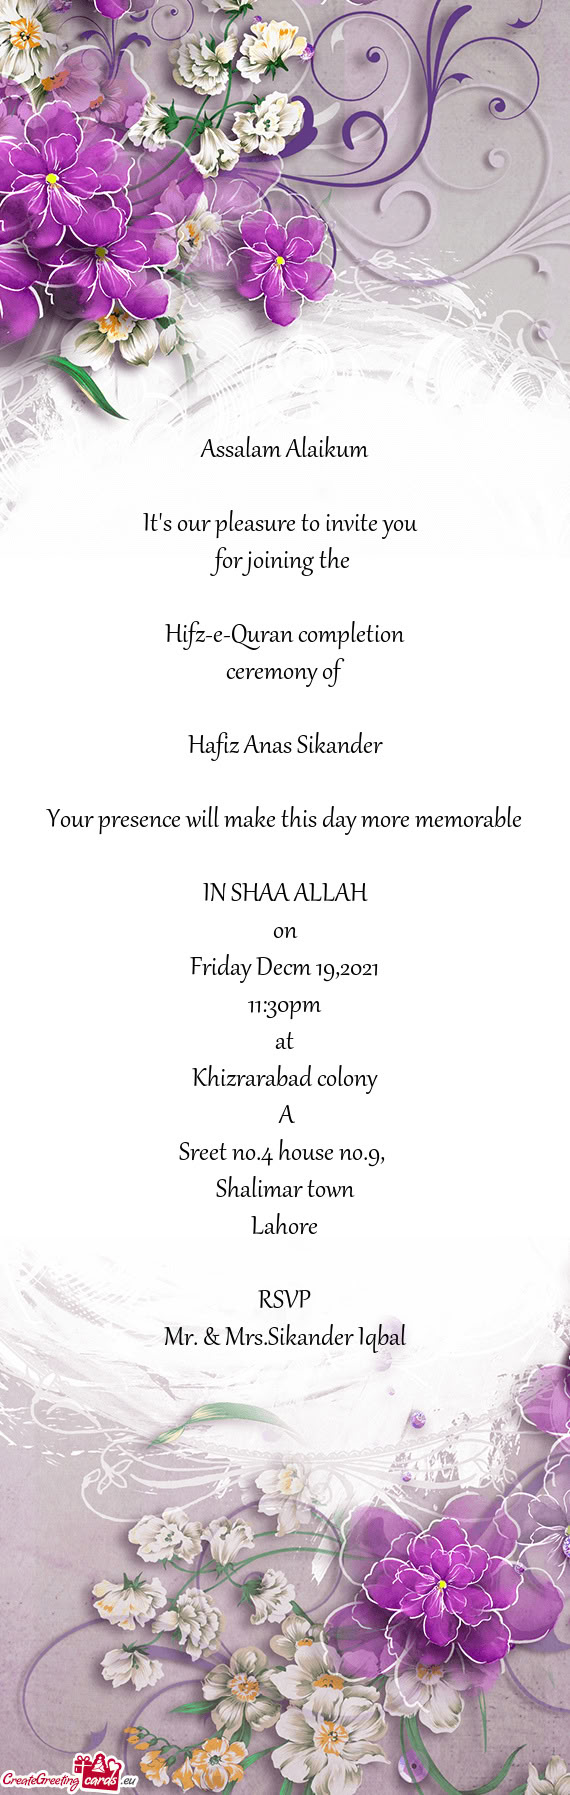 Assalam Alaikum
It's our pleasure to invite you
for joining the
Hifz-e-Quran completion
ceremony of
Hafiz Anas Sikander
Your presence will make this day more memorable
IN SHAA ALLAH
on
Friday Decm 19,2021
11:30pm
at
Khizrarabad colony
A
Sreet no.4 house no.9,
Shalimar town
Lahore
RSVP
Mr. & Mrs.Sikander Iqbal
CreateGreeting cards .eu